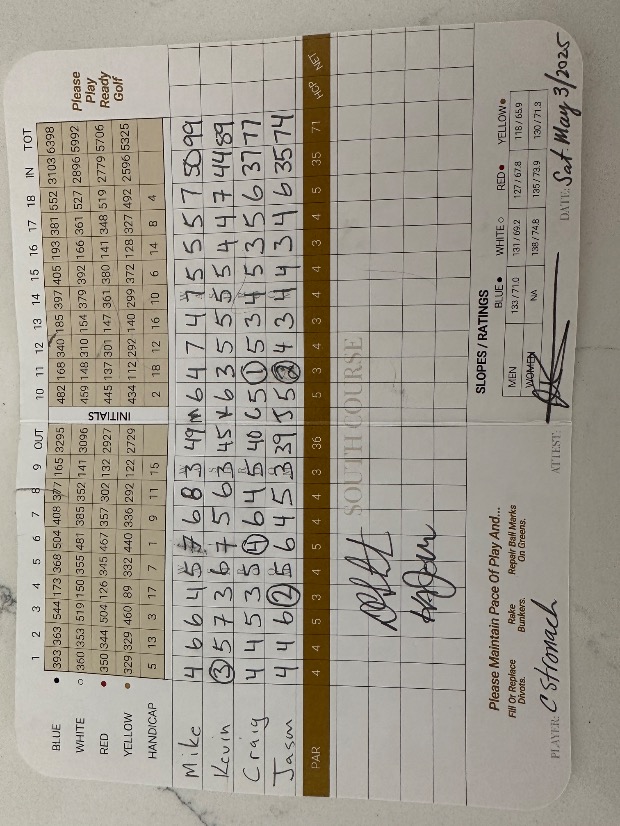 1 2 3 4 5 6 7 8 9 OUT INITIALS 10 11 12 13 14 15 16 17 18 IN TOT
BLUE 393 363 544 173 368 504 408 377 165 3295 482 168 340 185 397 405 193 381 552 3103 6398
WHITE 360 353 519 150 355 481 385 352 141 3096 459 148 310 154 379 392 166 361 527 2896 5992
RED 350 344 504 126 345 467 357 302 132 2927 445 137 301 147 361 380 141 348 519 2779 5706
YELLOW 329 329 460 89 332 440 336 292 122 2729 434 112 292 140 299 372 128 327 492 2596 5325
HANDICAP 5 13 3 17 7 1 9 11 15 2 18 12 16 10 6 14 8 4
Please
Play
Ready
Golf
Mike 4 6 6 4 5 7 6 8 3 49 M 6 4 7 4 7 5 5 5 7 50 99
Kevin 3 5 7 3 6 7 5 6 3 45 K 6 3 5 5 5 5 4 4 7 44 89
Craig 4 4 5 3 5 4 6 4 5 40 C 5 1 5 3 4 5 3 5 6 37 77
Jason 4 4 6 2 5 6 4 5 3 39 J 5 2 4 3 4 4 3 4 6 35 74
PAR 4 4 5 3 4 5 4 4 3 36 5 3 4 3 4 4 3 4 5 35 71 HCP NET
SOUTH COURSE
Please Maintain Pace Of Play And...
Fill Or Replace Divots.
Rake Bunkers.
Repair Ball Marks On Greens.
SLOPES / RATINGS
BLUE WHITE RED YELLOW
MEN 133 / 71.0 131 / 69.2 127 / 67.8 118 / 65.9
WOMEN NA 138 / 74.8 135 / 73.9 130 / 71.3
PLAYER: C Stronach
ATTEST:
DATE: Sat. May 3/2025